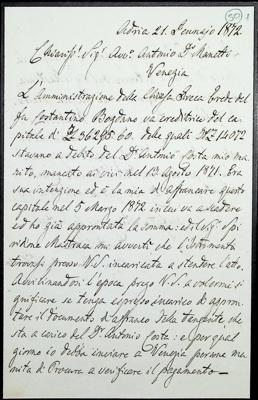 Adria 21. Gennajo 1872
Chiariss.º Sig.r Avv.º Antonio Dr Manetti
Venezia
L'Amministrazione della Chiesa Greca Erede del
fu Costantino va creditrice del ca-
pitale di 56295.60. delle quali 14072
stavano a debito del Dr Antonio Costa mio ma-
rito, mancato ai vivi nel 12 Agosto 1871. Era
sua intenzione ed è la mia di affrancare questo
capitale nel 5 Marzo 1872 in cui va a scadere
ed ho già approntata la somma: ed il Sig.r Spi-
ridione Mastraca mi avvertì che l'Istrumento
trovasi presso V.S. incaricata a stendere l'atto.
Avvicinandosi l'epoca prego V.S. a volermi si-
gnificare se tenga espresso incarico di appron-
tare il documento di affranco della tangente che
sta a carico del Dr Antonio Costa: e per qual
giorno io debba inviare a Venezia persona mu-
nita di Procura a verificare il pagamento —